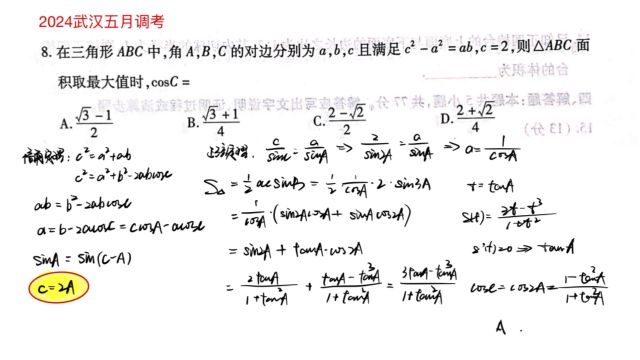 2024武汉五月调考
8. 在三角形 ABC 中,角 A,B,C 的对边分别为 a,b,c 且满足 c² − a² = ab, c = 2, 则 △ABC 面
积取最大值时, cosC =
A. (√3 − 1)/2 B. (√3 + 1)/4 C. (2 − √2)/2 D. (2 + √2)/4
c² = a² + ab
c² = a² + b² − 2abcosC
ab = b² − 2abcosC
a = b − 2acosC = ccosA − acosC
sinA = sin(C−A)
C = 2A
正弦定理: c/sinC = a/sinA ⇒ 2/sin2A = a/sinA ⇒ a = 1/cosA
S△ = ½ ac sinB = ½ · 1/cosA · 2 · sin3A
= 1/cosA · (sin2AcosA + sinAcos2A)
= sin2A + tanA·cos2A
= 2tanA/(1+tan²A) + (tanA − tan³A)/(1+tan²A) = (3tanA − tan³A)/(1+tan²A)
t = tanA
S(t) = (3t − t³)/(1+t²)
S'(t)=0 ⇒ tanA
cosC = cos2A = (1−tan²A)/(1+tan²A)
A.